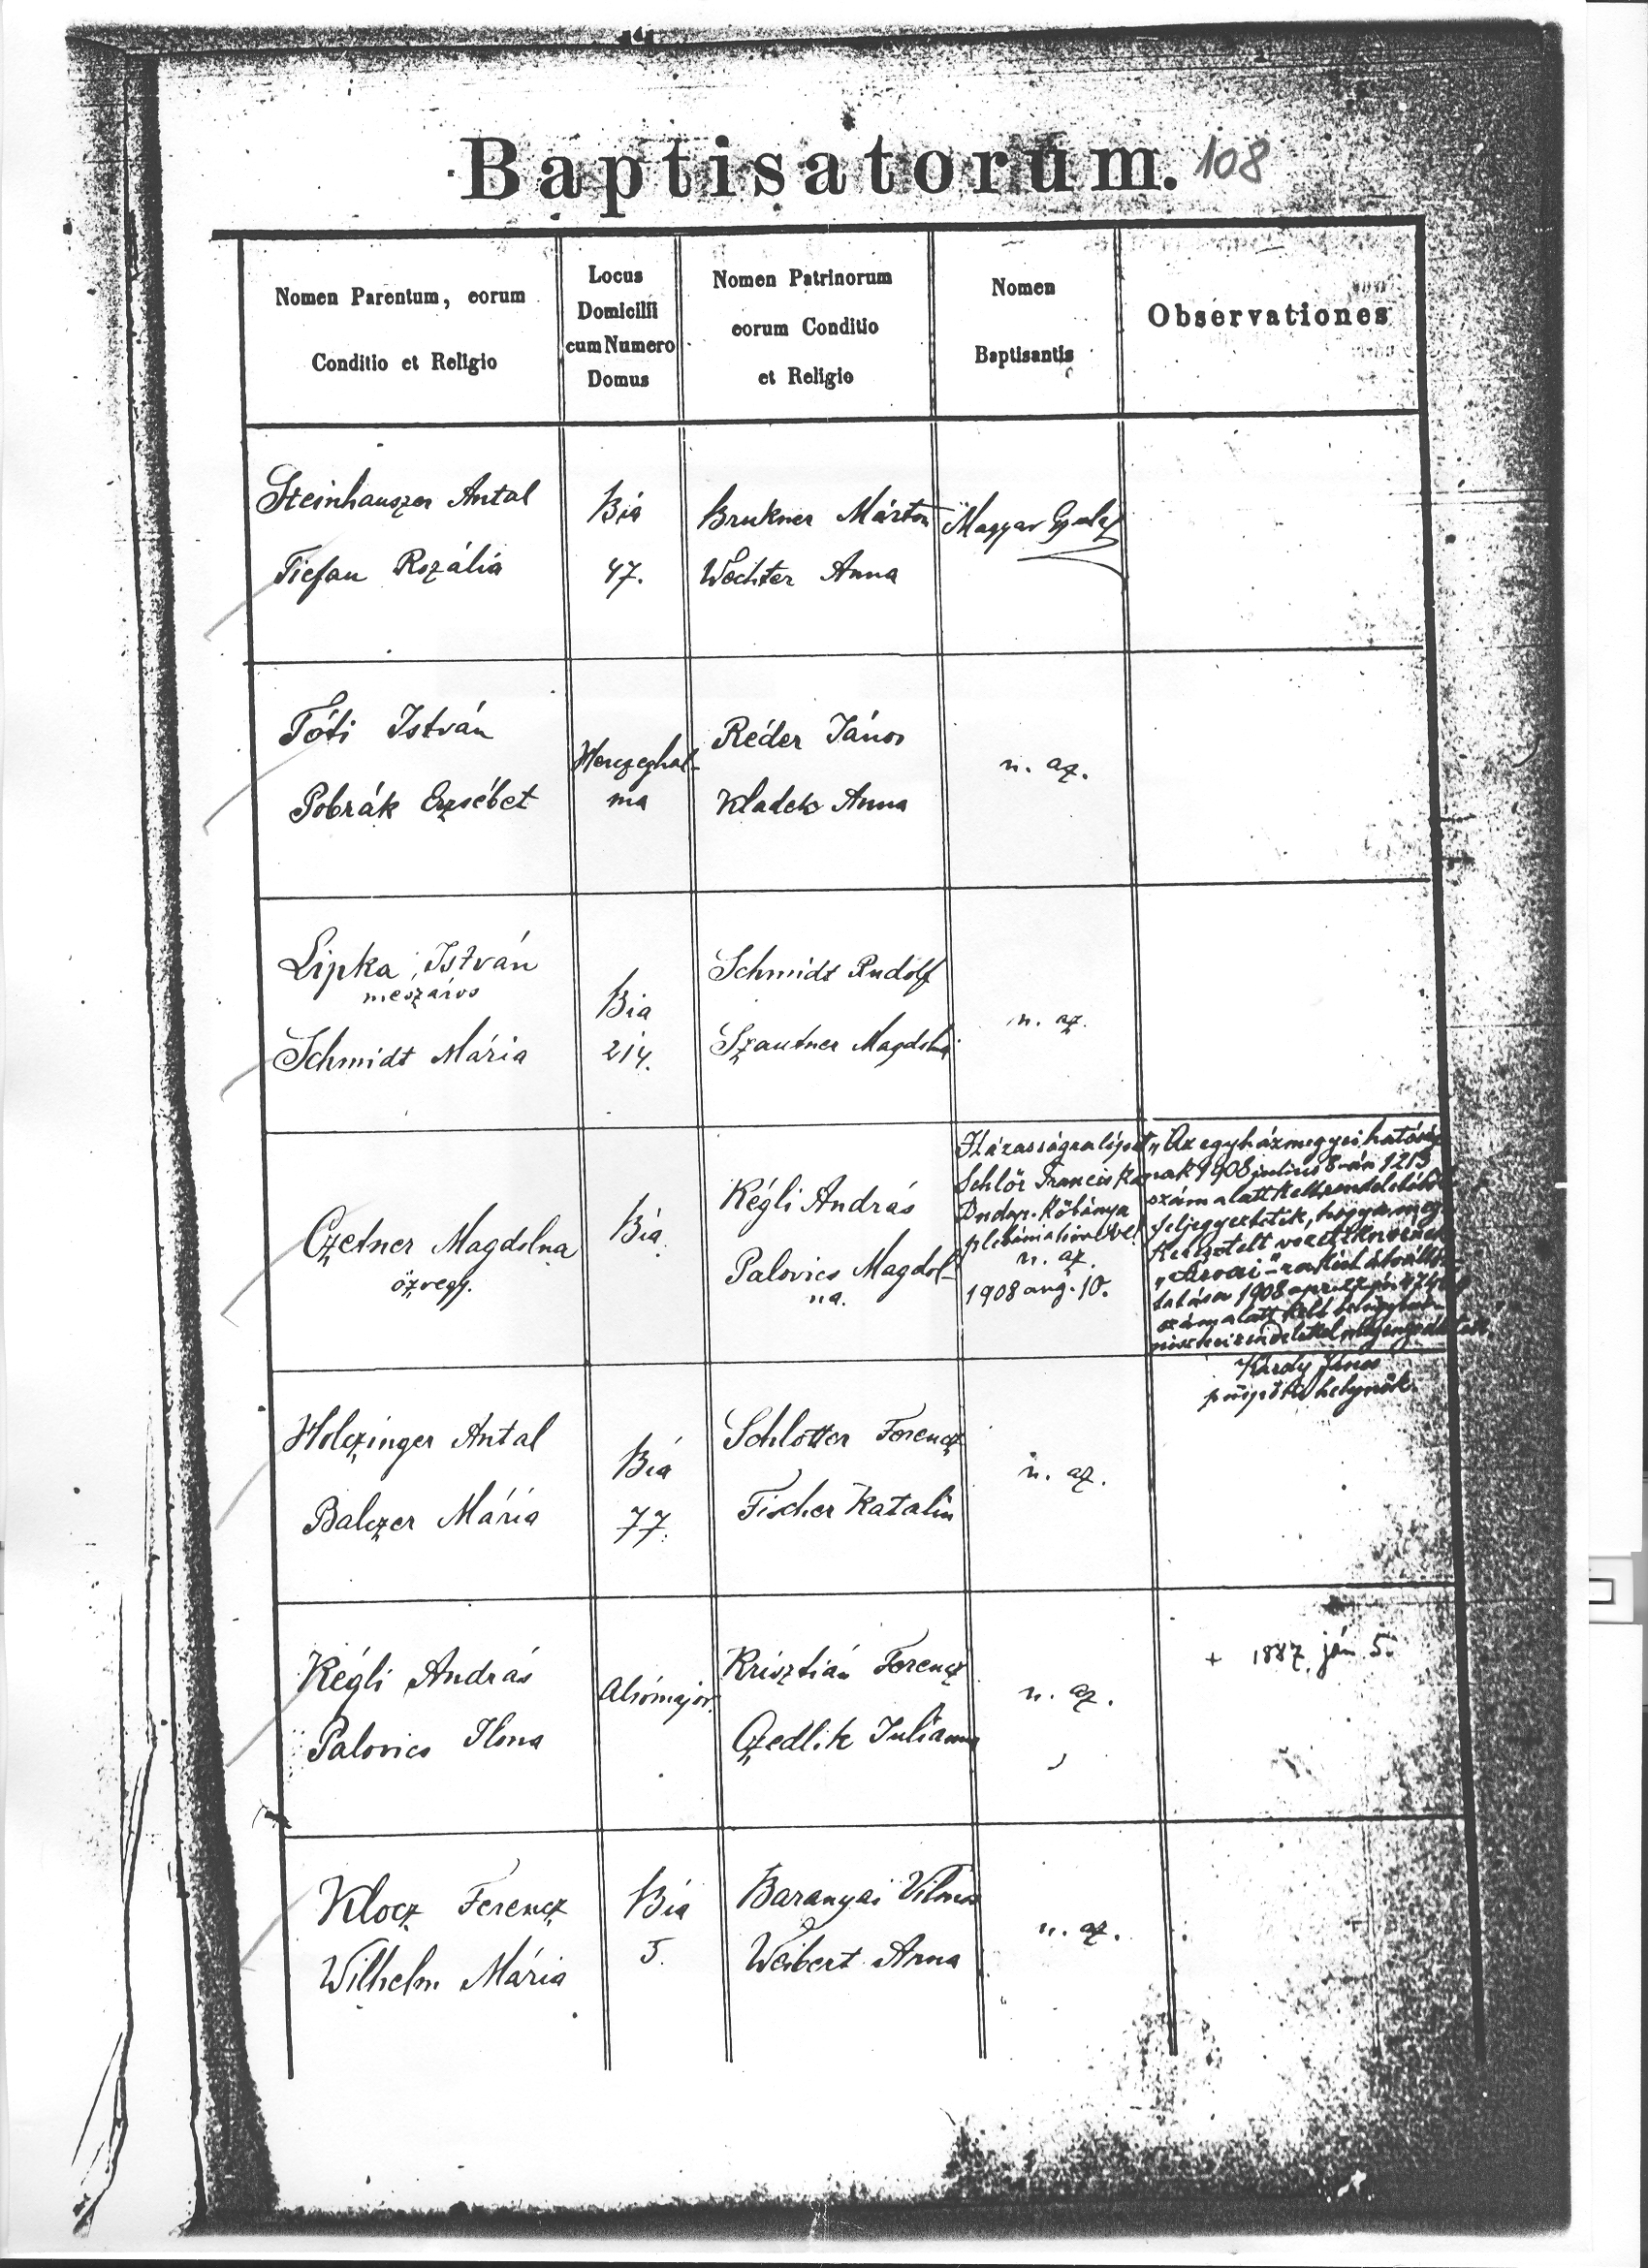 Baptisatorum. 108
Nomen Parentum, eorum
Conditio et Religio
Locus
Domicilii
cum Numero
Domus
Nomen Patrinorum
eorum Conditio
et Religio
Nomen
Baptisantis
Observationes
Steinhauszer Antal
Tiefau Rozália
Bia
47.
Brukner Márton
Wechter Anna
Magyar Gyula
Tóti István
Pobrák Erzsébet
Herczeghal-
ma
Réder János
Kladek Anna
u. az.
Lipka István
mészáros
Schmidt Mária
Bia
214.
Schmidt Rudolf
Szautner Magdolna
u. az.
Czetner Magdolna
özvegy.
Bia
Kégli András
Palovics Magdol-
na.
Házasságra lépett
Schlör Franciskanak
Budap. Kőbánya
plébánia
u. az
1908 aug. 10.
"Az egyházmegyei hatóság
1908 julius 8-án 1213
szám alatt kelt rendeletéből
feljegyeztetik, hogy a meg-
keresztelt vezetéknevének
"Árvai"-ra
1908 apr.
szám alatt kelt belügymi-
niszteri rendelettel megengedtetett
Kárdy János
püspöki helynök.
Holczinger Antal
Balczer Mária
Bia
77.
Schlotter Ferencz
Fischer Katalin
u. az.
Kégli András
Palovics Ilona
Alsómajor.
Krisztián Ferencz
Czedlik Julianna
u. az.
+ 1887. ján 5.
Klocz Ferencz
Wilhelm Mária
Bia
5.
Baranyai Vilmos
Weibert Anna
u. az.